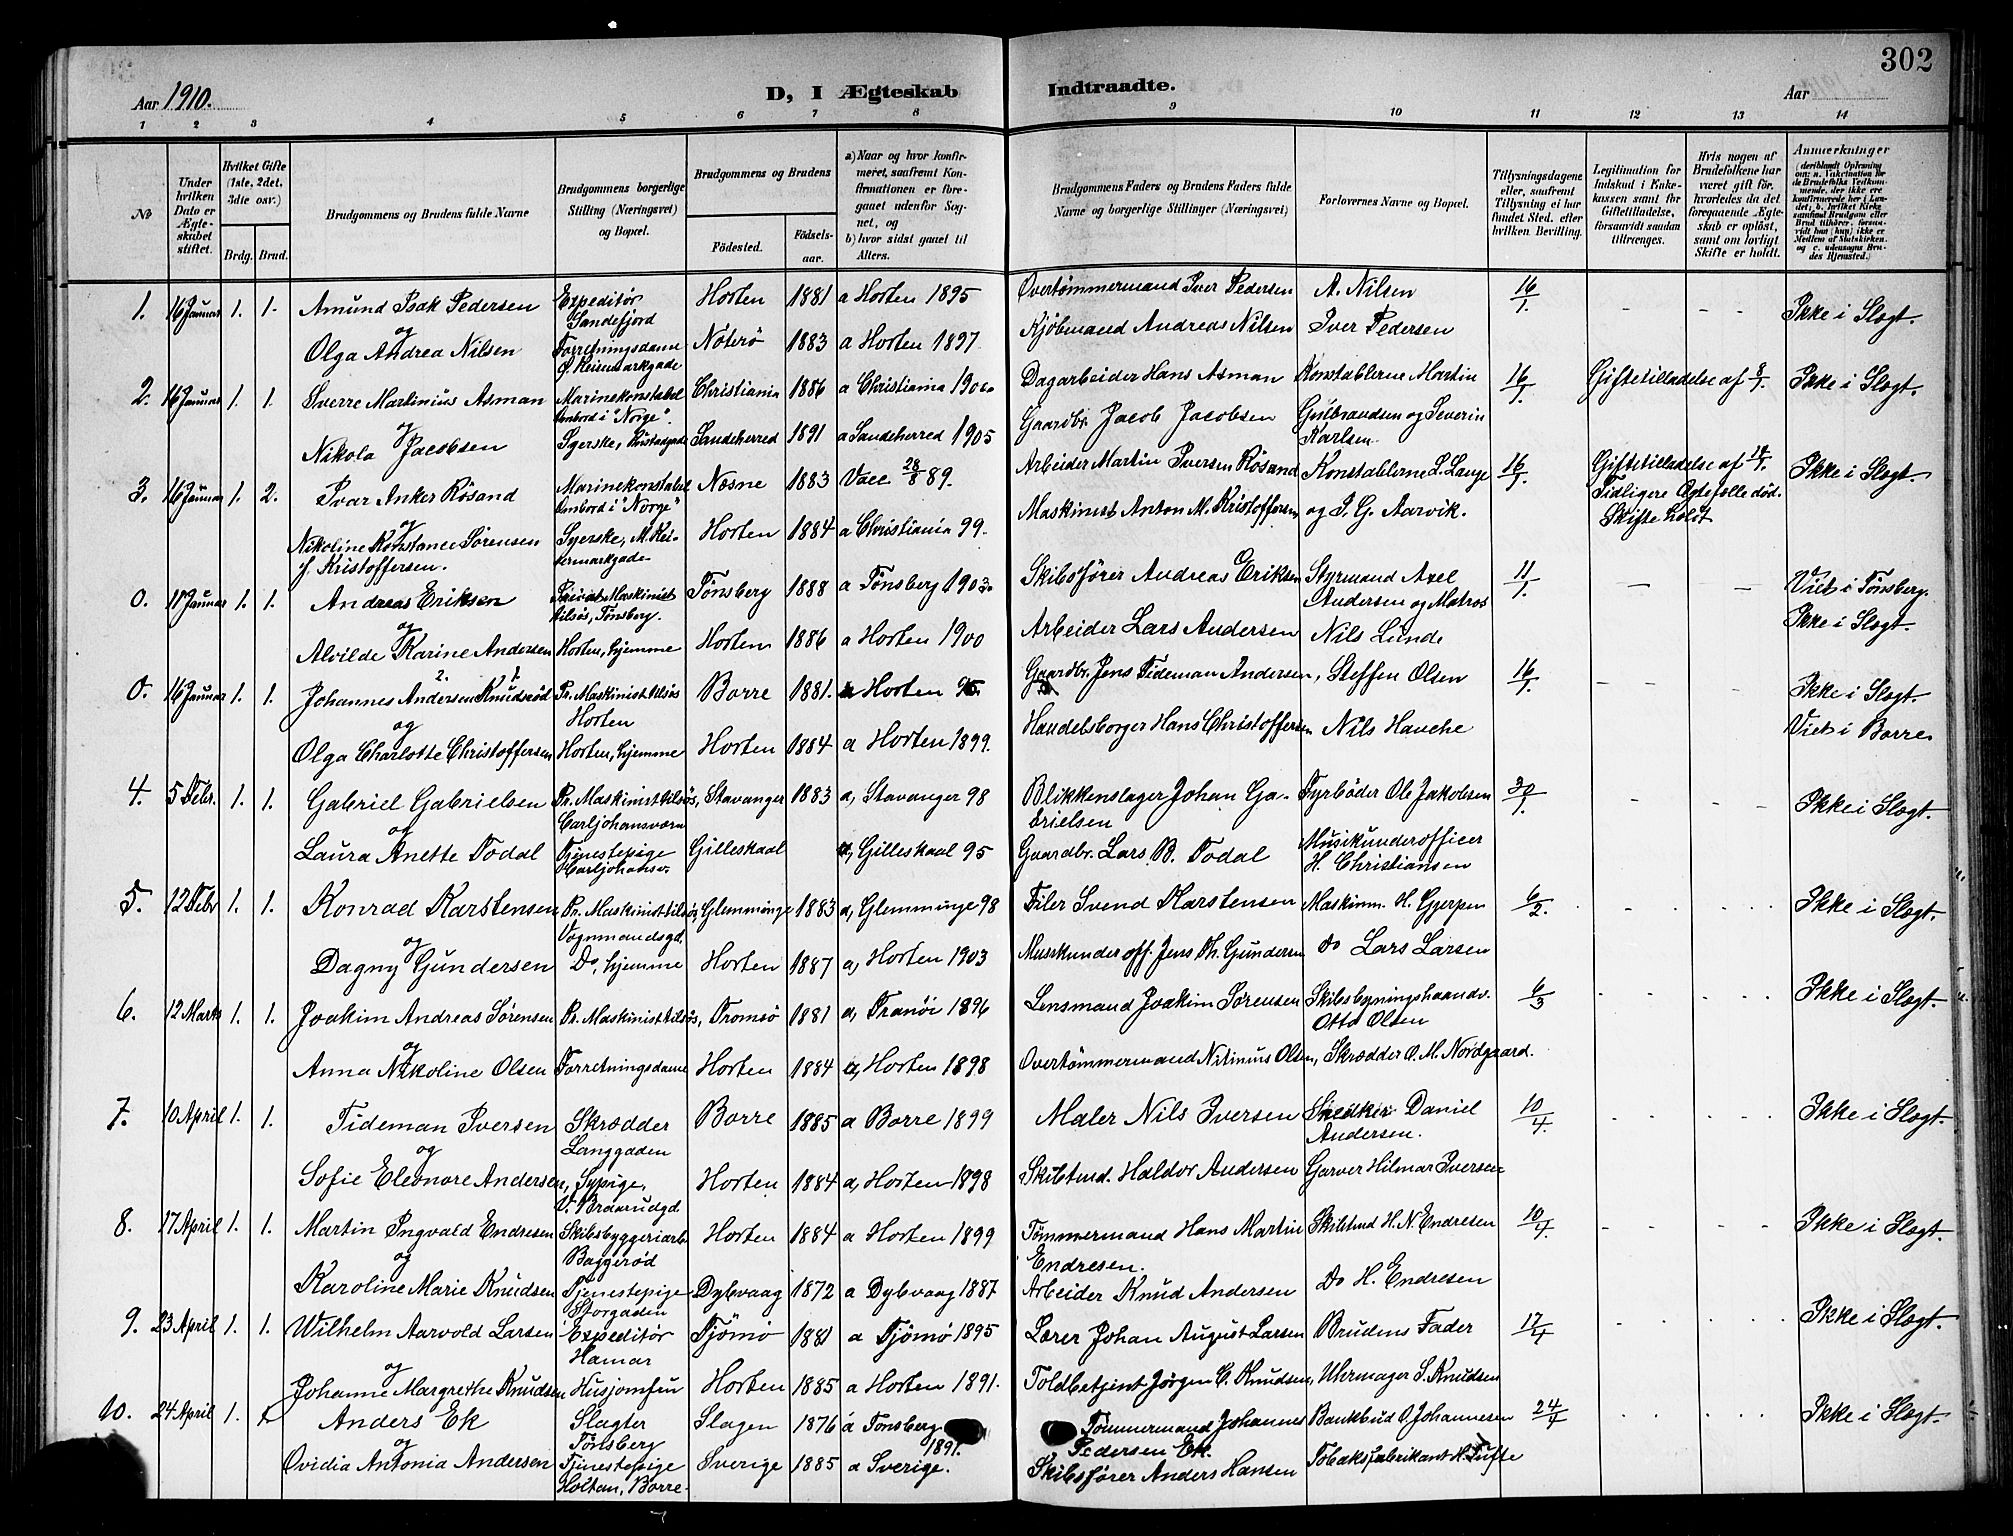 302
Aar 1910.
D, I Ægteskab Indtraadte.
Aar
1 2 3 4 5 6 7 8 9 10 11 12 13 14
No
Under hvilken Dato er Ægteskabet stiftet.
Hvilket Gifte (1ste, 2det, 3die osv.)
Brdg. Brud.
Brudgommens og Brudens fulde Navne
Brudgommens borgerlige Stilling (Næringsvei) og Bopæl.
Brudgommens og Brudens
Fødested.
Fødselsaar.
a) Naar og hvor konfirmeret, saafremt Konfirmationen er foregaaet udenfor Sognet, og
b) hvor sidst gaaet til Alters.
Brudgommens Faders og Brudens Faders fulde Navne og borgerlige Stillinger (Næringsvei)
Forlovernes Navne og Bopæl.
Tillysningsdagene eller, saafremt Tillysning ei har fundet Sted, efter hvilken Bevilling.
Legitimation for Indskud i Enkekassen samt for Giftetilladelse, forsaavidt saadan tiltrænges.
Hvis nogen af Brudefolkene har været gift før, hvorledes da det foregaaende Ægteskab er opløst, samt om lovligt Skifte er holdt.
Anmærkninger
1. 16 Januar 1. 1. Amund Isak Pedersen Expeditør Sandefjord Horten 1881 a Horten 1895 Overtømmermand Iver Pedersen A. Nilsen 16/1 - - - Ikke i Slægt.
og
Olga Andrea Nilsen Forretningsdame Ø. Keisemarkgade Nøterø 1883 a Horten 1897 Kjøbmand Andreas Nilsen Iver Pedersen
2. 16 Januar 1. 1. Sverre Martinius Asman Marinekonstabel Ombord i "Norge". Christiania 1886 a Christiania 190 Dagarbeider Hans Asman Konstablerne Martin 16/1 Giftetilladelse af 8/1. Ikke i Slægt.
og
Nikola Jacobsen Syerske, Sandeherred 1891 a Sandeherred 1905 Gaardbr. Jacob Jacobsen Gulbrandsen og Severin Karlsen.
3. 16 Januar 1. 2. Ivar Anker Rösand Marinekonstabel Ombord i "Norge" Næsne 1883 Vacc 28/8 89. Arbeider Martin Iversen Rösand Konstablerne L. Lange 16/1 Giftetilladelse af 14/1. Ikke i Slægt.
Tidligere Ægtefælle död. Skifte holdt
og
Nikoline Konstance Sørensen f. Kristoffersen. Syerske, M. Keisermarkgade Horten 1884 a Christiania 99. Maskinist Anton M. Kristoffersen og I. G. Aarvik.
0. 11 Januar 1. 1. Andreas Eriksen Privat Maskinist tilsøs, Tønsberg. Tønsberg 1888 a Tønsberg 1903 Skibsfører Andreas Eriksen Styrmand Axel Andersen og Matros 11/1 - - Viet i Tønsberg.
og
Alvilde Karine Andersen Horten, hjemme Horten 1886 a Horten 1900 Arbeider Lars Andersen Nils Lunde Ikke i Slægt.
0. 16 Januar 1. 1. Johannes Andersen Knudsrød Pr. Maskinist tilsøs Horten Borre 1881. a Horten 95. Gaardbr. Jens Tideman Andersen, Steffen Olsen 16/1 - - - Ikke i Slægt.
og
Olga Charlotte Christoffersen Horten, hjemme Horten 1884 a Horten 1899. Handelsborger Hans Christoffersen Nils Hauche Viet i Borre
4. 5 Febr. 1. 1. Gabriel Gabrielsen Pr. Maskinist tilsøs, Carljohansværn Stavanger 1883 a, Stavanger 98 Blikkenslager Johan Gabrielsen Fyrbøder Ole Jakobsen 30/1 - - - Ikke i Slægt.
og
Laura Anette Todal Tjenestepige Carljohansv. Gilleskaal a, Gilleskaal 95 Gaardbr. Lars B. Todal Musikunderofficer H. Christiansen
5. 12 Febr 1. 1. Konrad Karstensen Pr. Maskinist tilsøs, Vognmandsgd. Glemminge 1883 a, Glemminge 98 Filer Svend Karstensen Maskinm. H. Gjerpen 6/2. Ikke i Slægt.
og
Dagny Gundersen Do, hjemme Horten 1887 a, Horten 1903 Musikunderoff. Jens Th. Gundersen Do Lars Larsen
6. 12 Marts 1. 1. Joakim Andreas Sørensen Pr. Maskinist tilsøs, Tromsø 1881 a, Tranöi 1896 Lensmand Joakim Sørensen Skibsbygningshaandv. Otto Olsen 6/3 Ikke i Slægt.
og
Anna Nikoline Olsen Forretningsdame Horten 1884 a, Horten 1898 Overtömmermand Nilinius Olsen, Skrædder O. M. Nordgaard.
7. 10 April 1. 1. Tideman Iversen Skrædder Langgaden Borre 1885 a Borre 1899 Maler Nils Iversen Snedker Daniel Andersen. 10/4. Ikke i Slægt.
og
Sofie Eleonore Andersen, Sypige, V. Braarudgd Horten 1884 a, Horten 1898 Skibstmd. Haldor Andersen Garver Hilmar Iversen
8. 17 April 1. 1. Martin Ingvald Endresen Skibsbyggeriarb. Baggerød Horten 1884 a Horten 1899 Tømmermand Hans Martin Endresen. Skibstmd H. N. Endresen 10/4. Ikke i Slægt.
og
Karoline Marie Knudsen Tjenestepige Storgaden Dybvaag 1872 a Dybvaag 1887 Arbeider Knud Andersen Do H. Endresen
9. 23 April 1. 1. Wilhelm Aarvold Larsen Expeditör Hamar Tjömö 1881 a Tjömö 1895 Lærer Johan August Larsen Brudens Fader 17/4 Ikke i Slægt.
og
Johanne Margrethe Knudsen Husjomfru Horten 1885 a Horten 1891. Toldbetjent Jørgen C. Knudsen, Uhrmager S. Knudsen
10. 24 April 1. Anders Ek Slagter Tönsberg Slagen 1876 a Tonsberg 1891. Tømmermand Johannes Pedersen Ek. Bankbud O. Johannesen 24/4 Ikke i Slægt.
og
Ovidia Antonia Andersen Tjenestepige Holtan, Borre. Sverige 1885 a Sverige. Skibsfører Anders Hansen Tobaksfabrikant H. Tufte